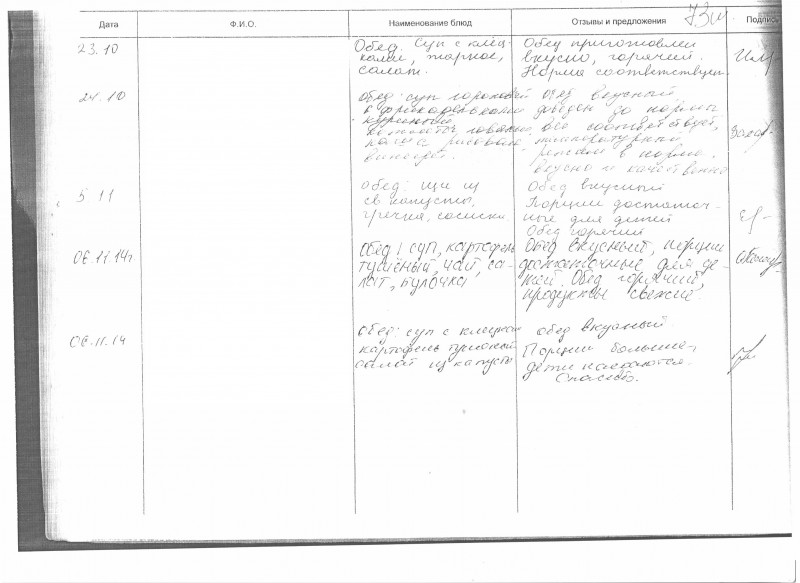 73ш.
Дата Ф.И.О. Наименование блюд Отзывы и предложения Подпись
23.10
Обед. Суп с клец-
ками, жаркое,
салат.
Обед приготовлен
вкусно, горячий.
Норма соответствует.
24.10
Обед: суп гороховый
с фрикадельками
куриный
каша рисовая
виноград.
Обед вкусный
доведен до нормы
все соответствует,
температурный
в норме.
вкусно и качественно
5 11
Обед: щи из
св капусты,
гречка, сосиски
Обед вкусный
Порции достаточ-
ные для детей
Обед горячий
06.11.14г
Обед! суп, картофель
тушёный, чай, са-
лат, булочка
Обед вкусный, порции
достаточные для де-
тей. Обед горячий,
продукты свежие.
06.11.14
обед: суп с клецками
картофель тушеный
салат из капусты
обед вкусный.
Порции большие,
дети наедаются.
Спасибо.